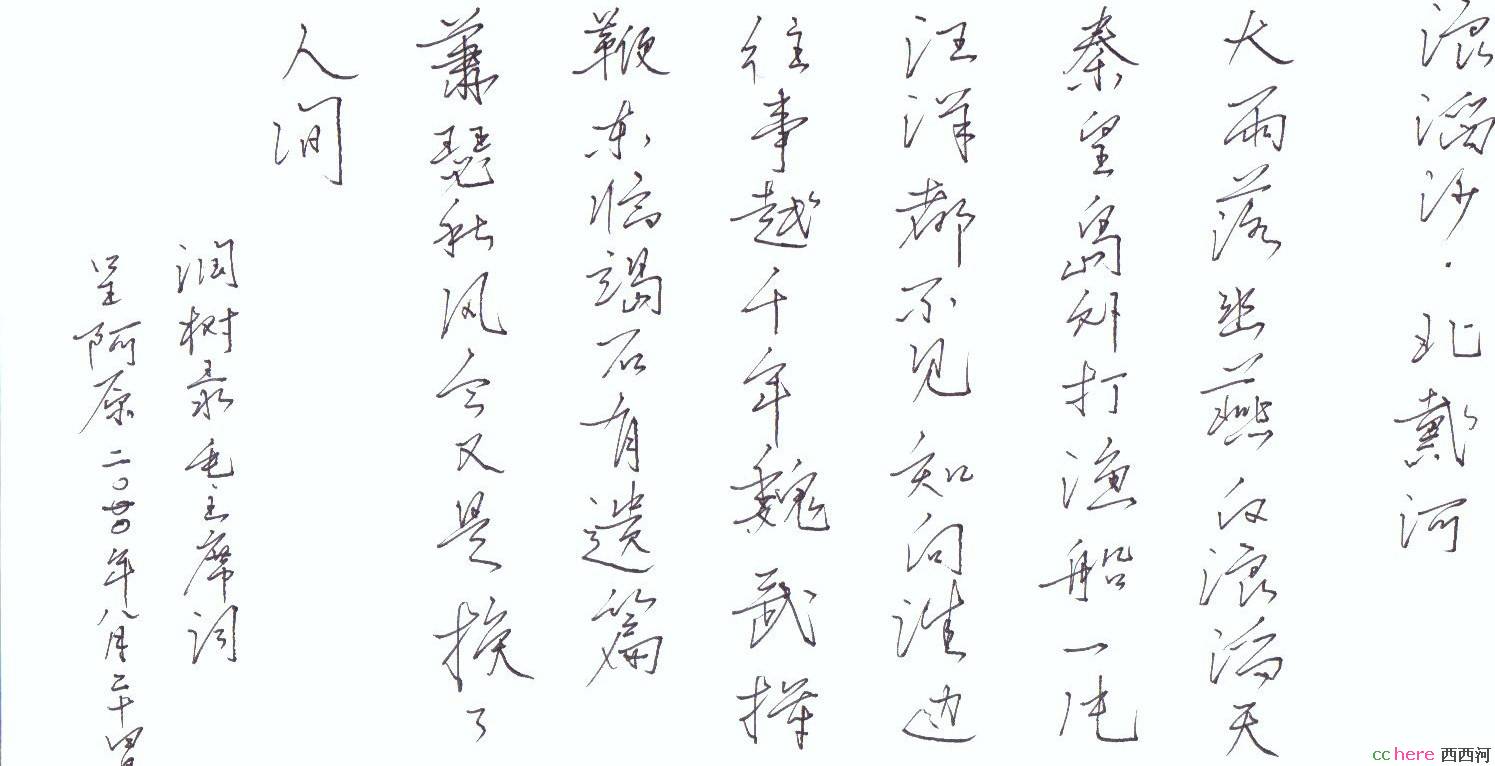 浪滔沙·北戴河
大雨落幽燕白浪滔天
秦皇島外打渔船一片
汪洋都不见知向谁边
往事越千年魏武挥
鞭东临碣石有遗篇
蕭瑟秋风今又是换了
人间
润树录毛主席词
呈阿原二〇年八月二十四日
cchere 西西河